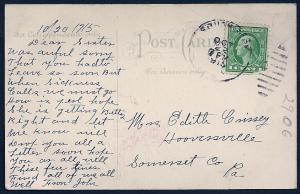 10/20 1915
Dear Sister
Was awful sorry
That you had to
leave so soon But
when Sickness
Calls we must go
How is Josh hope
he is getting Better
Right and let
We know will
drop you all a
letter soon hope
you are all well
These few lines
Find all of us well
From John
POST CARD
Mrs Edith Crissey
Hooversville
Somerset Co
Pa
2106